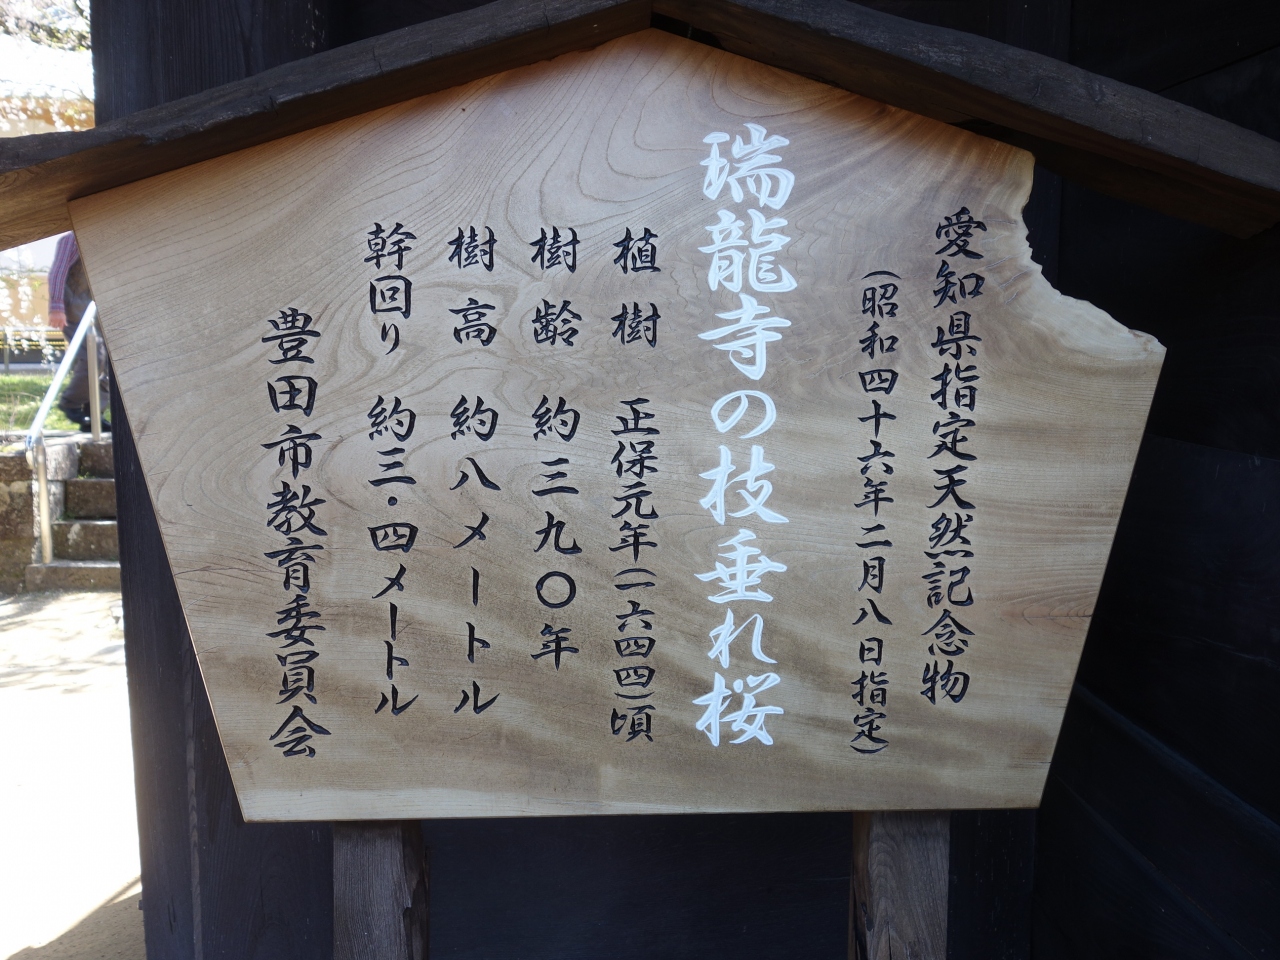 愛知県指定天然記念物
（昭和四十六年二月八日指定）
瑞龍寺の枝垂れ桜
植樹 正保元年（一六四四）頃
樹齢 約三九〇年
樹高 約八メートル
幹回り 約三・四メートル
豊田市教育委員会